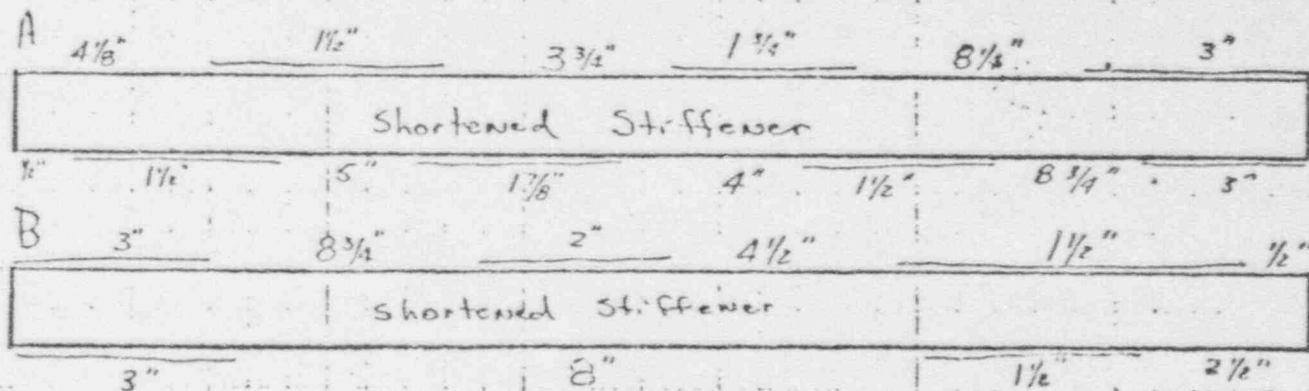 A
4 1/8" 1 1/2" 3 3/4" 1 3/4" 8 1/4" 3"
Shortened Stiffener
1/2" 1 1/2" 5" 1 7/8" 4" 1 1/2" 8 3/4" 3"
B
3" 8 3/4" 2" 4 1/2" 1 1/2" 1/2"
shortened Stiffener
3" 8" 1 1/2" 2 1/2"